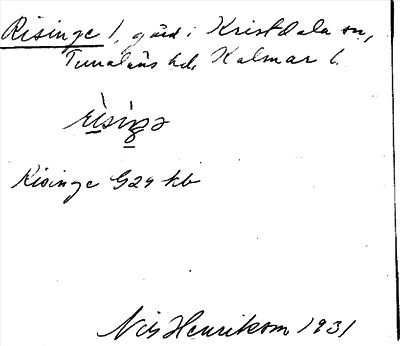 Risinge 1, gård i Kristdala sn,
Tunaläns hd, Kalmar l.
rìsiŋə
Risinge 1629 kb
Nils Henrikson 1931